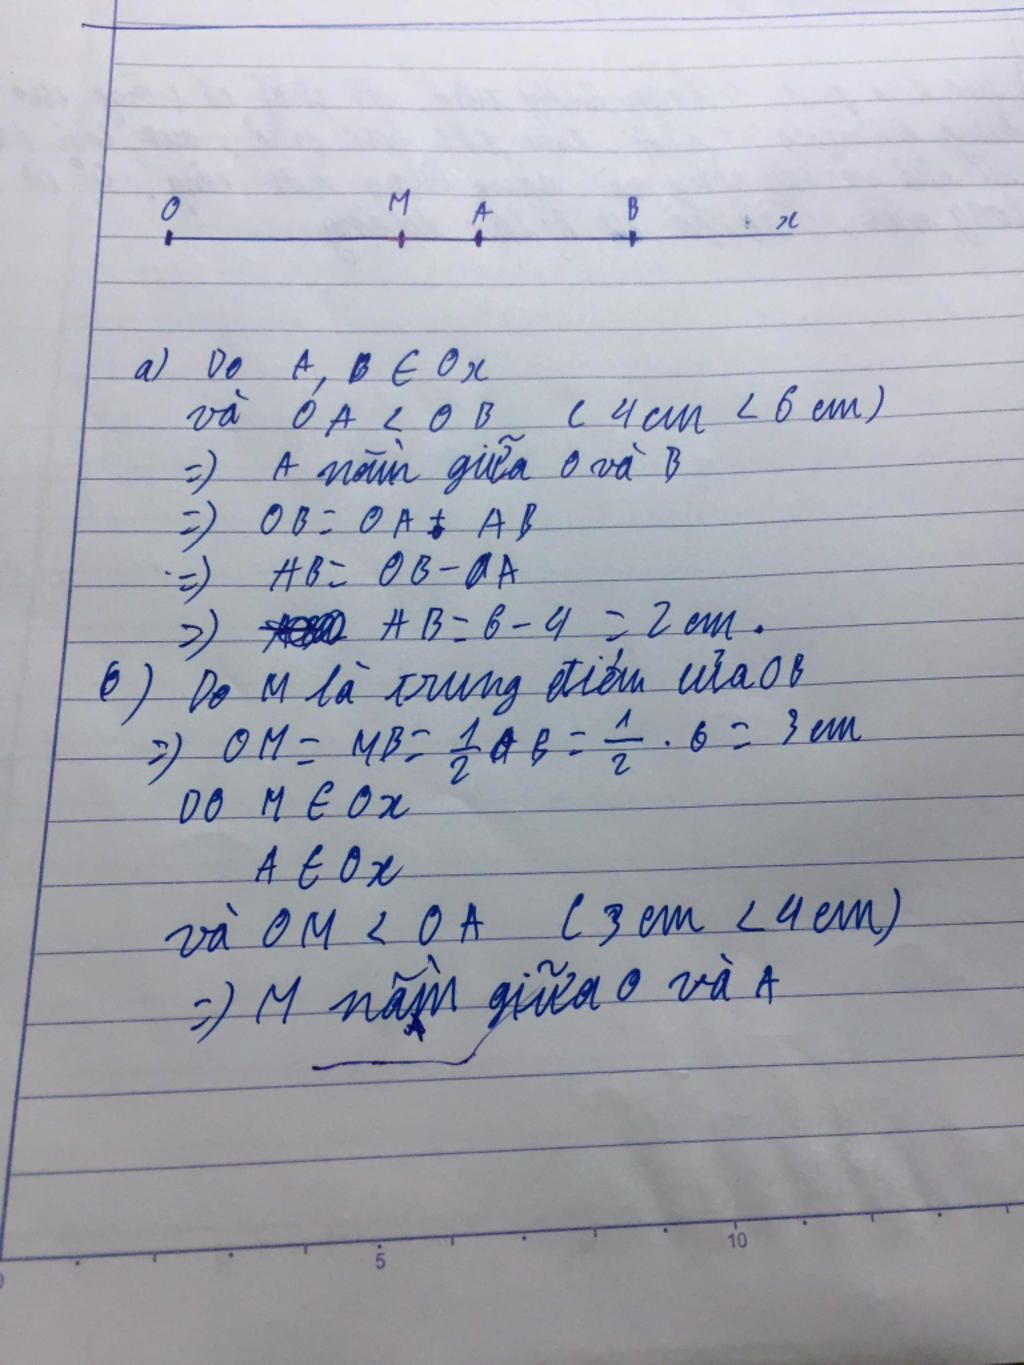 O M A B x
a) Do A, B ∈ Ox
và OA < OB ( 4 cm < 6 cm )
=) A nằm giữa O và B
=) OB = OA + AB
=) AB = OB - OA
=) AB = 6 - 4 = 2 cm.
b) Do M là trung điểm của OB
=) OM = MB = 1/2 OB = 1/2 . 6 = 3 cm
DO M ∈ Ox
A ∈ Ox
và OM < OA ( 3 cm < 4 cm )
=) M nằm giữa O và A
5 10